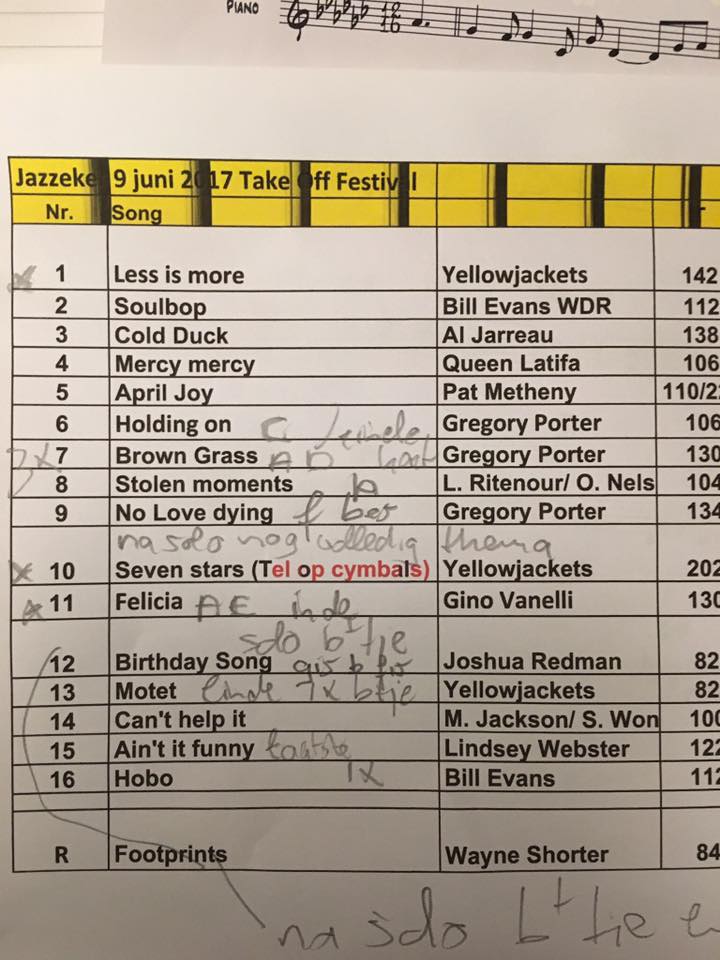 PIANO
Jazzeke 9 juni 2017 Take Off Festival
Nr. Song
1 Less is more Yellowjackets 142
2 Soulbop Bill Evans WDR 112
3 Cold Duck Al Jarreau 138
4 Mercy mercy Queen Latifa 106
5 April Joy Pat Metheny 110/2
6 Holding on Gregory Porter 106
3x 7 Brown Grass AD Gregory Porter 130
8 Stolen moments b L. Ritenour/ O. Nels 104
9 No Love dying Gregory Porter 134
na solo nog volledig thema
x 10 Seven stars (Tel op cymbals) Yellowjackets 202
11 Felicia AE Gino Vanelli 130
solo b
12 Birthday Song Joshua Redman 82
13 Motet einde 7x Yellowjackets 82
14 Can't help it M. Jackson/ S. Won 100
15 Ain't it funny laatste Lindsey Webster 122
16 Hobo 1x Bill Evans 112
R Footprints Wayne Shorter 84
na solo